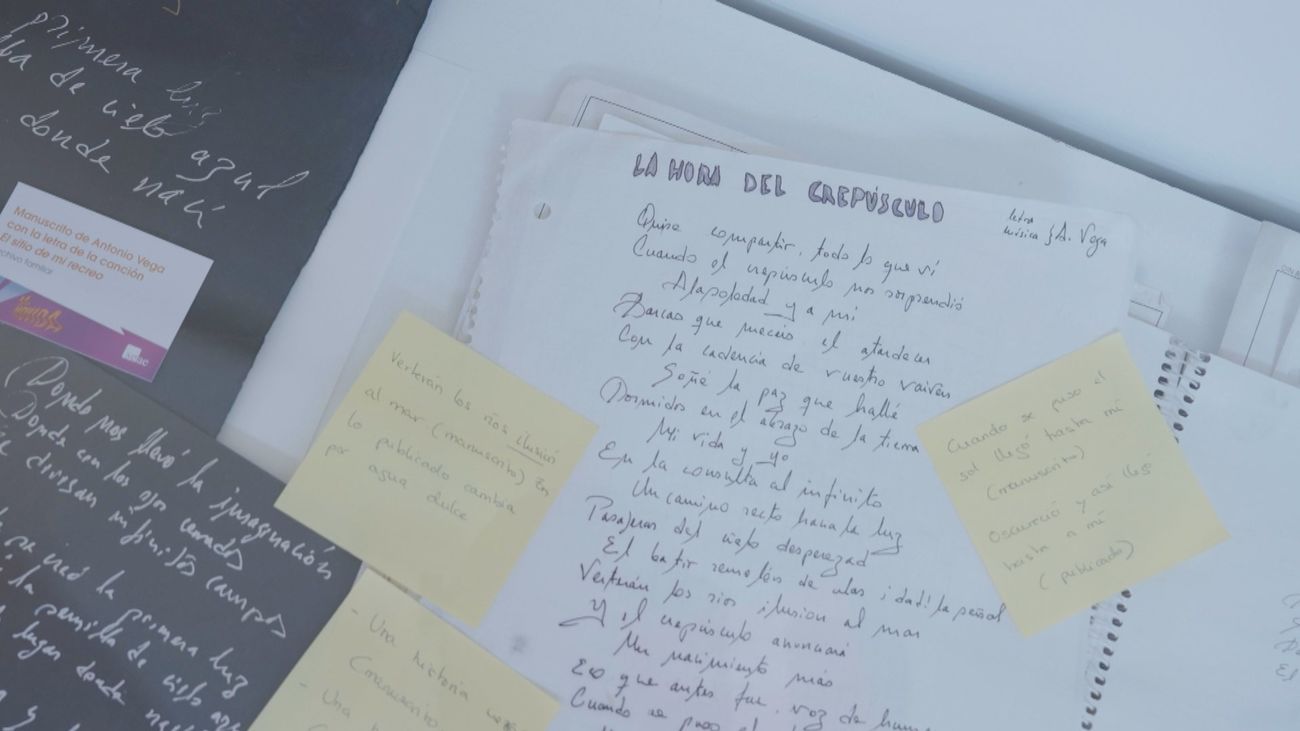 primera luz
de cielo azul
donde nací
Manuscrito de Antonio Vega
con la letra de la canción
El sitio de mi recreo
archivo familiar
Donde nos llevó la imaginación
Donde con los ojos cerrados
se divisan infinitos campos
la primera luz
la semilla de cielo
lugar donde
LA HORA DEL CREPÚSCULO
letra
música } A. Vega
Quise compartir, todo lo que ví
Cuando el crepúsculo nos sorprendió
A la soledad y a mi
Barcas que meceis el atardecer
Con la cadencia de vuestro vaivén
Soñé la paz que hallé
Dormidos en el abrazo de la tierra
Mi vida y yo
En la consulta al infinito
Un camino recto hacia la luz
Pasajeras del cielo desperezad
El batir remolón de alas ¡dad! la señal
Verterán los rios ilusion al mar
Y el crepúsculo anunciará
Un nacimiento más
Eco que antes fue, voz de
Cuando se puso el
Verterán los ríos ilusión
al mar (manuscrito) En
lo publicado cambia
por agua dulce
- Una historia
(manuscrito
- Una
Cuando se puso el
sol llegó hasta mí
(manuscrito)
Oscureció y así llegó
hasta a mí
(publicado)